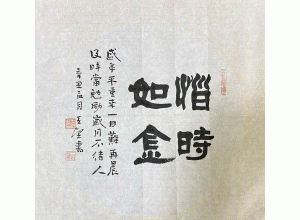 惜時
如金
盛年不重来一日難再晨
及時當勉勵歲月不待人
辛丑月王書